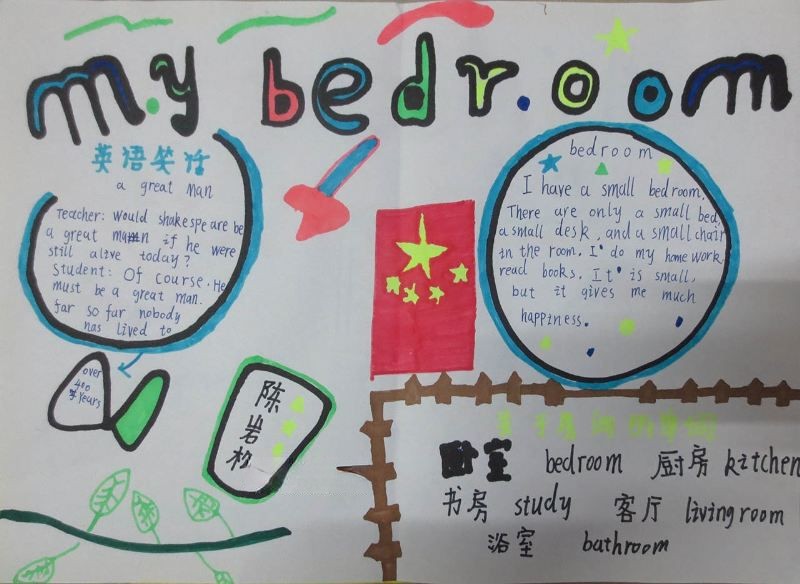 my bedroom
英语笑话
a great man
Teacher: Would shakespeare be
a great man if he were
still alive today?
Student: Of course. He
must be a great man.
far so far nobody
has lived to
over
400
years
陈岩松
bedroom
I have a small bedroom.
There are only a small bed
a small desk, and a small chair
in the room. I do my home work
read books. It is small,
but it gives me much
happiness.
关于房间的单词
卧室 bedroom 厨房 kitchen
书房 study 客厅 livingroom
浴室 bathroom